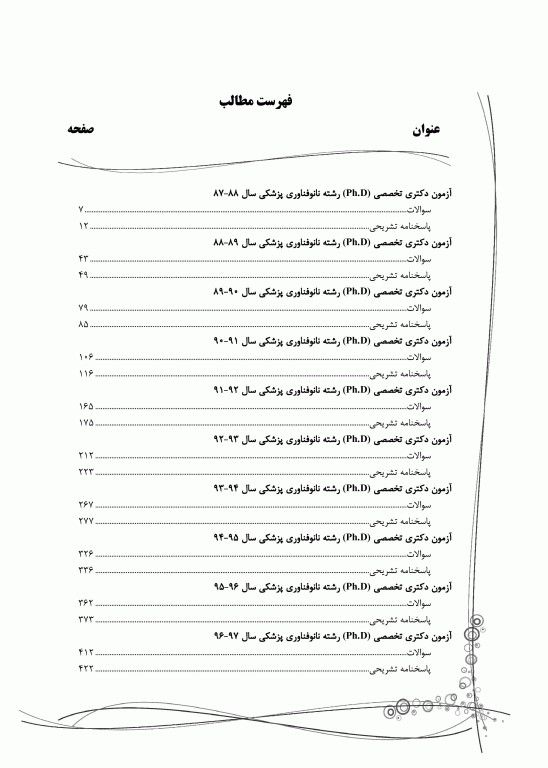 فهرست مطالب
عنوان صفحه
آزمون دکتری تخصصی (Ph.D) رشته نانوفناوری پزشکی سال ۸۸-۸۷
سوالات ........ ۷
پاسخنامه تشریحی ........ ۱۲
آزمون دکتری تخصصی (Ph.D) رشته نانوفناوری پزشکی سال ۸۹-۸۸
سوالات ........ ۴۳
پاسخنامه تشریحی ........ ۴۹
آزمون دکتری تخصصی (Ph.D) رشته نانوفناوری پزشکی سال ۹۰-۸۹
سوالات ........ ۷۹
پاسخنامه تشریحی ........ ۸۵
آزمون دکتری تخصصی (Ph.D) رشته نانوفناوری پزشکی سال ۹۱-۹۰
سوالات ........ ۱۰۶
پاسخنامه تشریحی ........ ۱۱۶
آزمون دکتری تخصصی (Ph.D) رشته نانوفناوری پزشکی سال ۹۲-۹۱
سوالات ........ ۱۶۵
پاسخنامه تشریحی ........ ۱۷۵
آزمون دکتری تخصصی (Ph.D) رشته نانوفناوری پزشکی سال ۹۳-۹۲
سوالات ........ ۲۱۲
پاسخنامه تشریحی ........ ۲۲۳
آزمون دکتری تخصصی (Ph.D) رشته نانوفناوری پزشکی سال ۹۴-۹۳
سوالات ........ ۲۶۷
پاسخنامه تشریحی ........ ۲۷۷
آزمون دکتری تخصصی (Ph.D) رشته نانوفناوری پزشکی سال ۹۵-۹۴
سوالات ........ ۳۲۶
پاسخنامه تشریحی ........ ۳۳۶
آزمون دکتری تخصصی (Ph.D) رشته نانوفناوری پزشکی سال ۹۶-۹۵
سوالات ........ ۳۶۲
پاسخنامه تشریحی ........ ۳۷۳
آزمون دکتری تخصصی (Ph.D) رشته نانوفناوری پزشکی سال ۹۷-۹۶
سوالات ........ ۴۱۲
پاسخنامه تشریحی ........ ۴۲۲